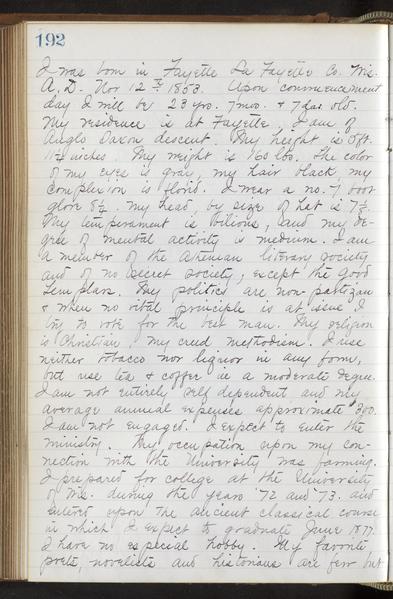 192
I was born in Fayette La Fayette Co. Wis.
A.D. Nov 12th 1853. Upon commencement
day I will be 23 yrs. 7 mos. & 7 das. old.
My residence is at Fayette. I am of
Anglo Saxon descent. My height is 5 ft.
11½ inches. My weight is 160 lbs. The color
of my eyes is gray, my hair black, my
complexion is florid. I wear a no. 7 boot
glove 8½. my head, by size of hat is 7½.
My temperament is bilious, and my de-
gree of mental activity is medium. I am
a member of the Athenian literary society
and of no secret society, except the Good
Templars. My politics are non-partizan
& when no vital principle is at issue I
try to vote for the best man. My religion
is Christian my creed methodism. I use
neither tobacco nor liquor in any form,
but use tea & coffee in a moderate degree.
I am not entirely self dependent and my
average annual expenses approximate $300.
I am not engaged. I expect to enter the
ministry. My occupation upon my con-
nection with the University was farming.
I prepared for college at the University
of Wis. during the years '72 and '73. and
entered upon the ancient classical course
in which I expect to graduate June 1877.
I have no especial hobby. My favorite
poets, novelists and historians are few but